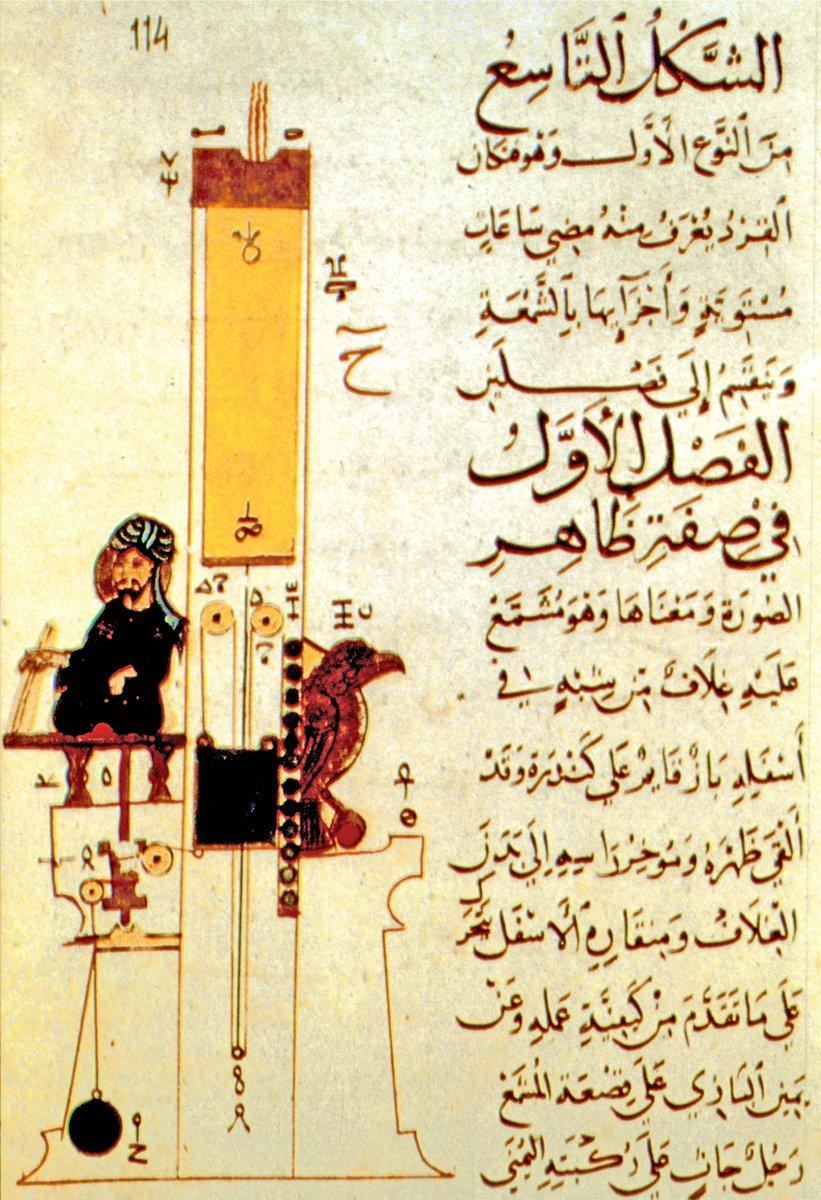 114
الشَّكْلُ التَّاسِعُ
مِنَ النَّوْعِ الأَوَّلِ وَهُوَ فنكان
القِرْد يُعْرَفُ مِنْهُ مضي سَاعَاتٍ
مُسْتَوِيَةٍ وَأَجْزَآيِهَا بِالشَّمْعَةِ
وَيَنقَسِمُ إِلَى فَصْلَيْنِ
الفَصْلُ الأَوَّلُ
فِي صِفَةِ ظَاهِرِ
الصُّورَةِ وَمَعْنَاهَا وَهُوَ مُشَمَّعٌ
عَلَيْهِ غِلَافٌ مِن شَبَهٍ فِي
أَسْفَلِهِ بَازٌ قَايِمٌ عَلَى كَنْدَرَةٍ وَقَدْ
أَلْقَى ظَهْرَهُ وَمُوَخِّرَ رَاسِهِ إِلَى بَدَنِ
الْغِلَافِ وَمِنقَارِهِ الأَسْفَل
عَلَى مَا تَقَدَّمَ مِنْ كَيْفِيَّةِ عَمَلِهِ وَعَنْ
يَمِينِ البَازِي عَلَى قِصْعَة المُشَمَّعِ
رَجُلٌ جَاثٍ عَلَى رُكْبَتِهِ اليُمْنَى